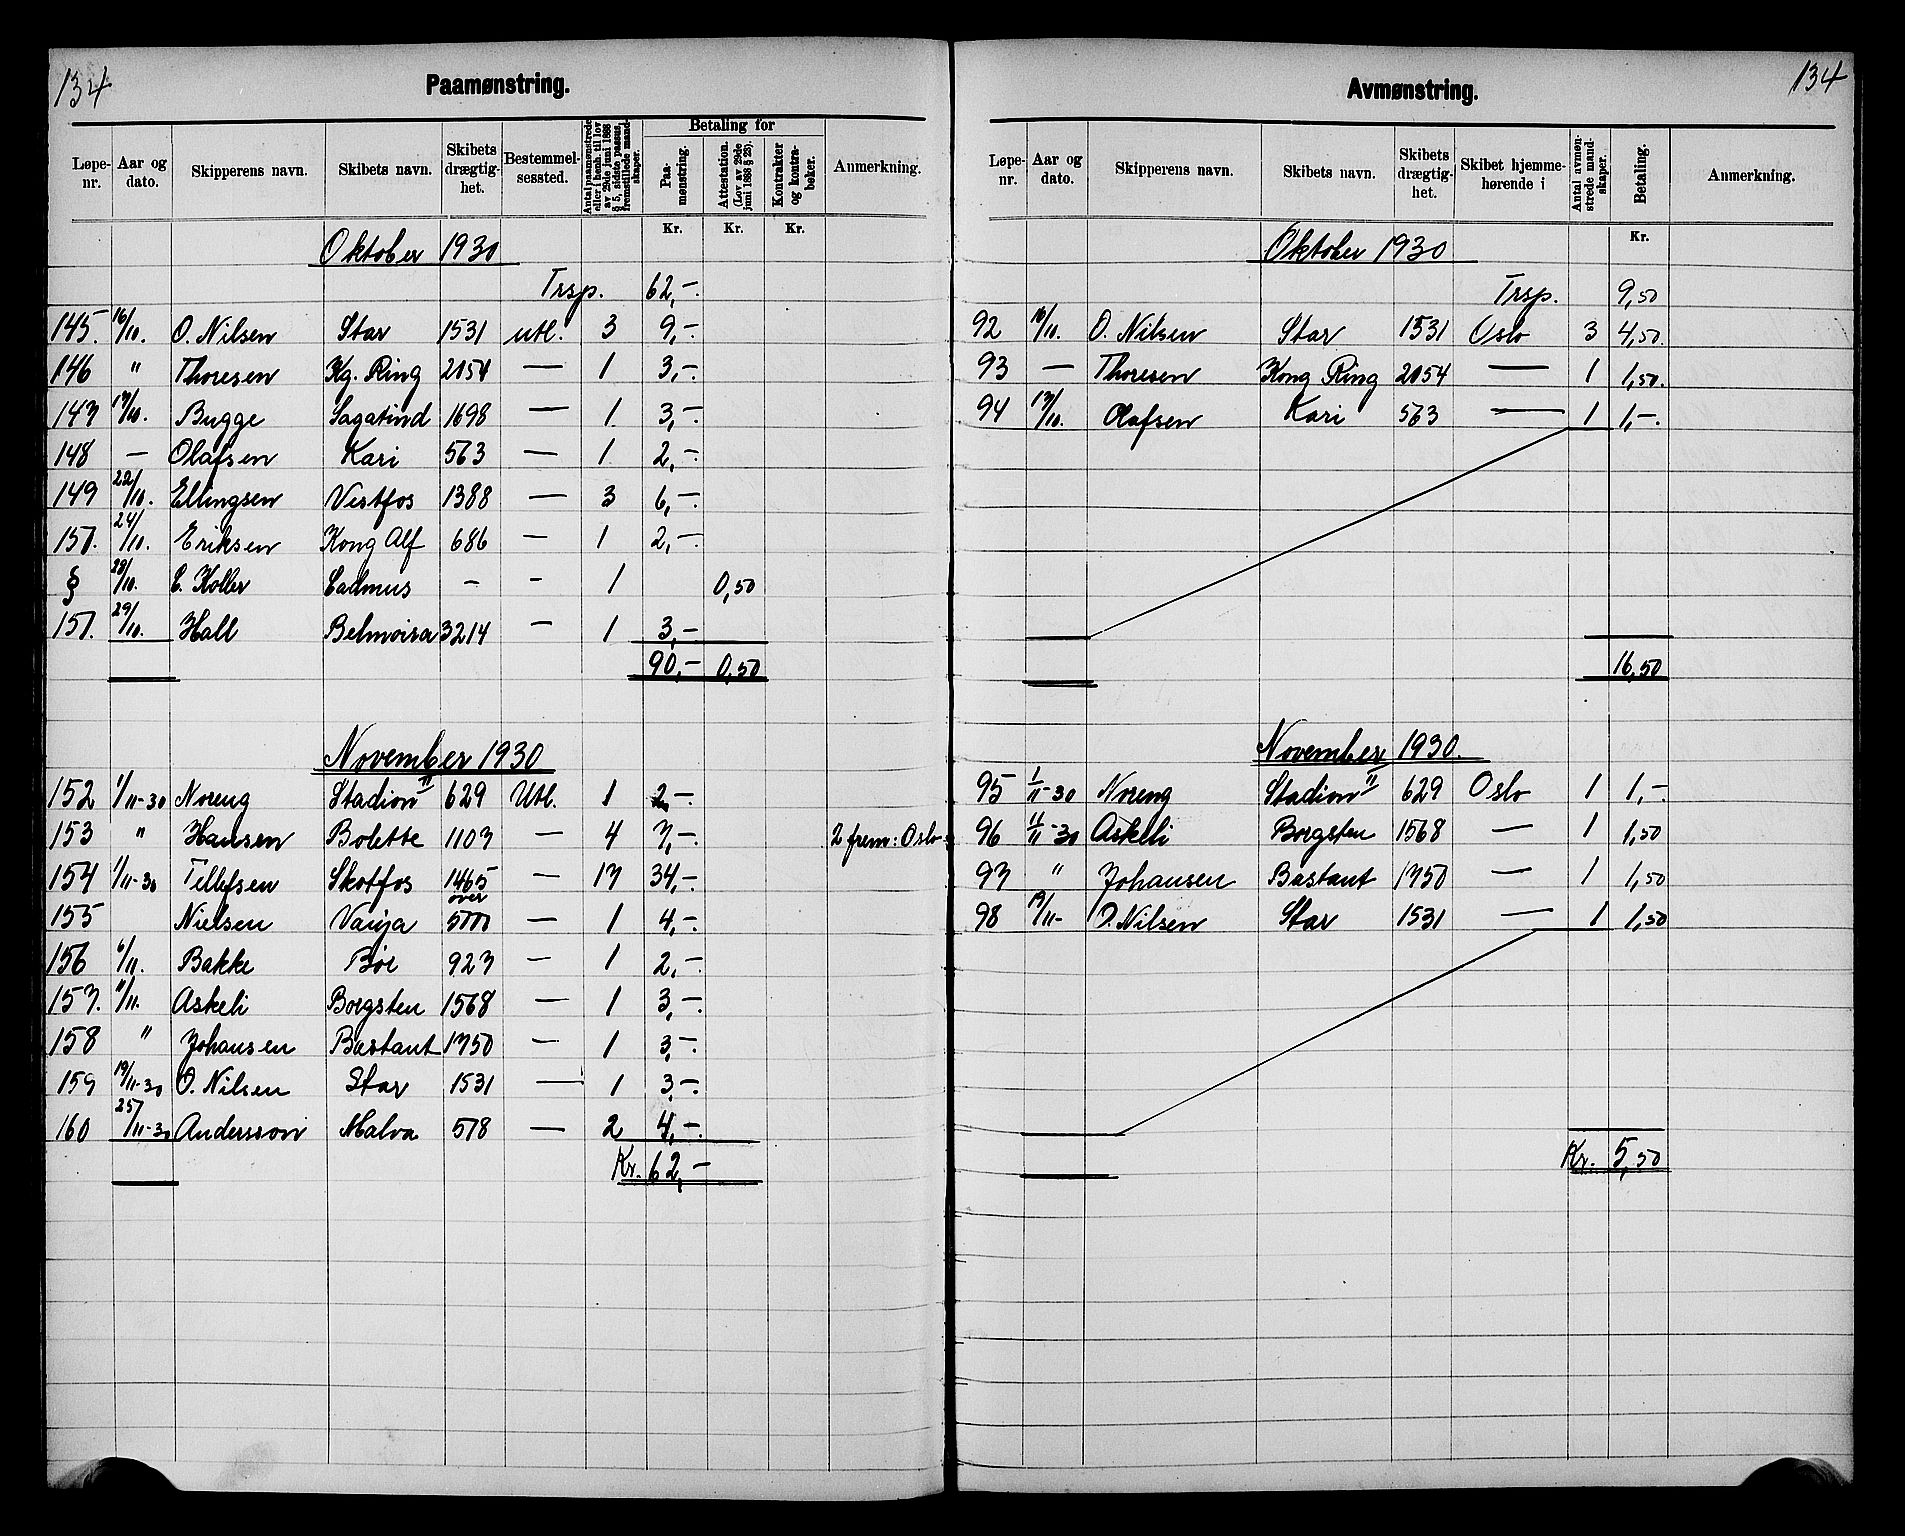 134
Paamønstring.
Løpe-nr. Aar og dato. Skipperens navn. Skibets navn. Skibets drægtig-het. Bestemmel-sessted. Antal paamønstrede eller i henh. til lov av 29de juni 1888 § 5, sidste passus, fremstillede mand-skaper. Betaling for Paa-mønstring. Attestation. (Lov av 29de juni 1888 § 28). Kontrakter og kontra-bøker. Anmerkning.
Kr. Kr. Kr.
Oktober 1930
Trsp. 62,-
145. 16/10. O. Nilsen Star 1531 utl. 3 9,-
146 " Thoresen Kg. Ring 2154 — 1 3,-
147 17/10. Bugge Sagatind 1698 — 1 3,-
148 — Olafsen Kari 563 — 1 2,-
149 22/10. Ellingsen Vestfos 1388 — 3 6,-
150. 24/10. Eriksen Kong Alf 686 — 1 2,-
§ 28/10. E. Koller Cadmus - - 1 0,50
151. 29/10. Hall Belmoira 3214 — 1 3,-
90,- 0,50
November 1930
152 1/11-30 Noreng Stadion II 629 Utl. 1 2,-
153 " Hansen Bolette 1103 — 4 7,- 2 frem: Oslo
154 1/11-30 Tellefsen Skotfos 1465 — 17 34,-
155 Nielsen Vanja over 5000 — 1 4,-
156 6/11. Bakke Bøe 923 — 1 2,-
157. 11/11. Askeli Borgsten 1568 — 1 3,-
158 " Johansen Bastant 1750 — 1 3,-
159 19/11-30 O. Nilsen Star 1531 — 1 3,-
160 25/11-30 Andersson Malva 578 — 2 4,-
Kr. 62,-
134
Avmønstring.
Løpe-nr. Aar og dato. Skipperens navn. Skibets navn. Skibets drægtig-het. Skibet hjemme-hørende i Antal avmøn-strede mand-skaper. Betaling. Anmerkning.
Kr.
Oktober 1930
Trsp. 9,50
92 16/10. O. Nilsen Star 1531 Oslo 3 4,50
93 — Thoresen Kong Ring 2054 — 1 1,50
94 17/10. Olafsen Kari 563 — 1 1,-
16,50
November 1930.
95 1/11-30 Noreng Stadion II 629 Oslo 1 1,-
96 11/11-30 Askeli Borgsten 1568 — 1 1,50
97 " Johansen Bastant 1750 — 1 1,50
98 19/11- O. Nilsen Star 1531 — 1 1,50
Kr. 5,50